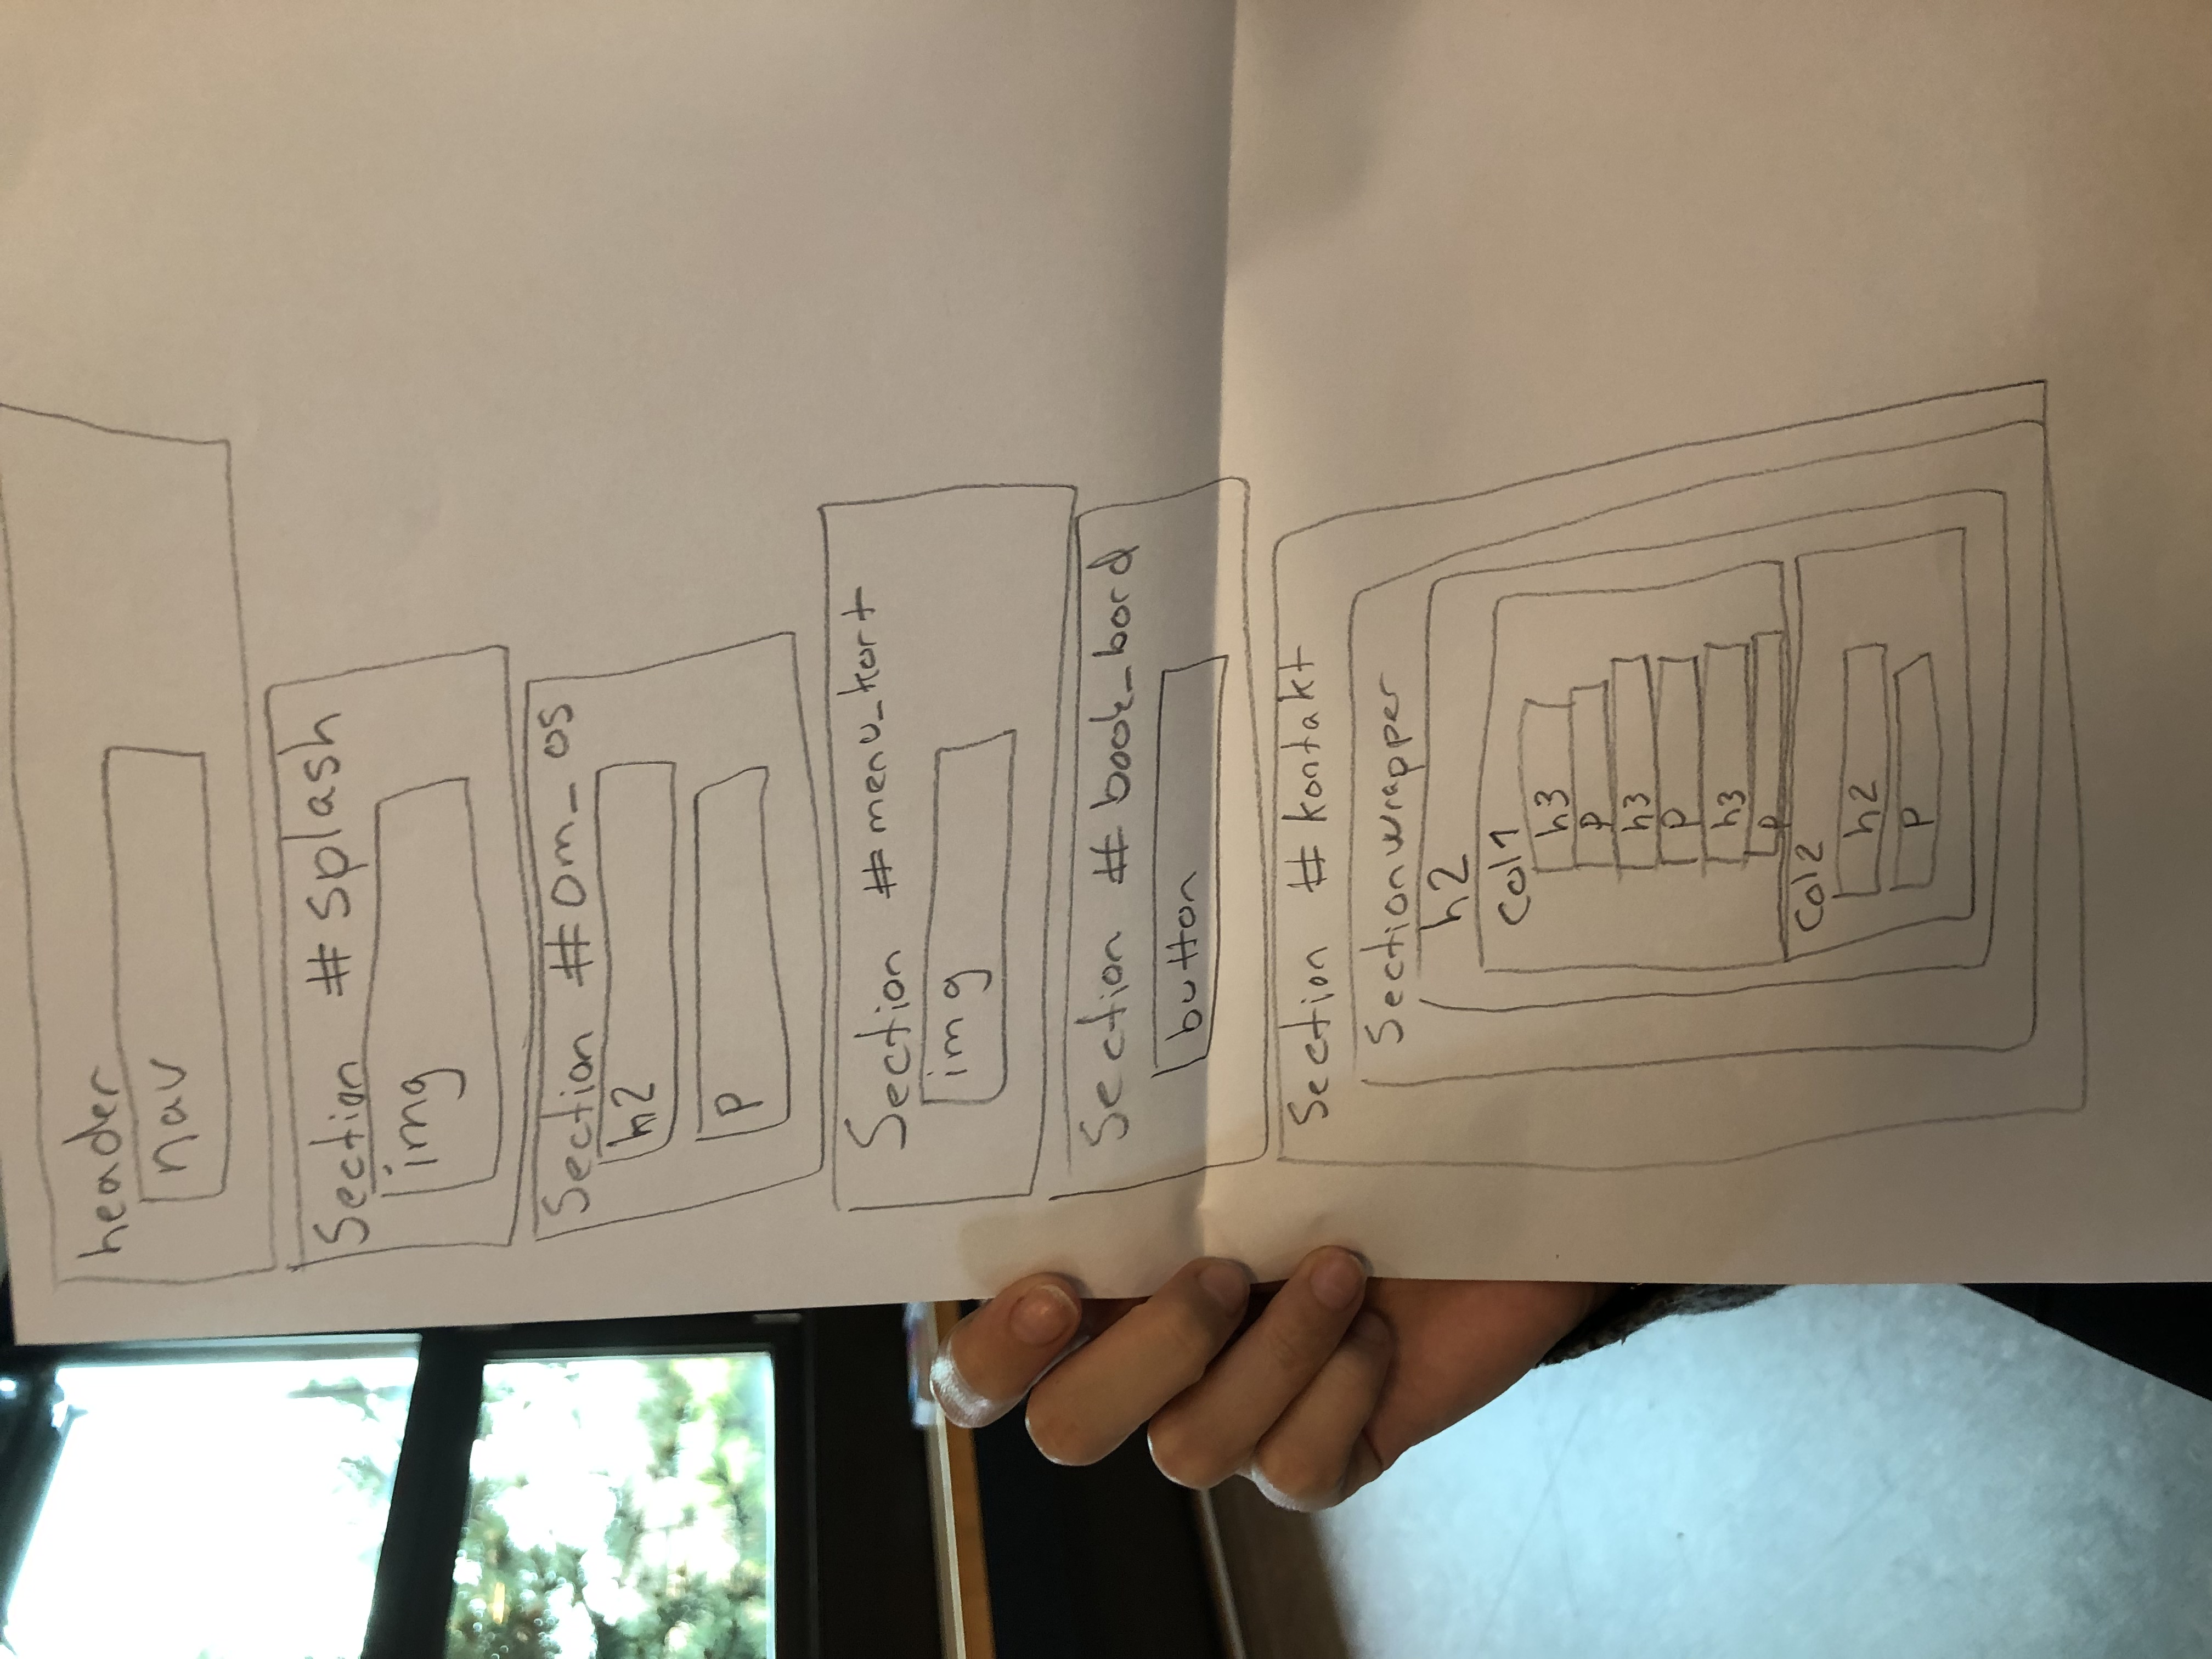 header
nav
Section # splash
img
Section # Om_os
h2
p
Section # menu_kort
img
Section # book_bord
button
Section # kontakt
Sectionwrapper
h2
Col1
h3
p
h3
p
h3
p
Col2
h2
p